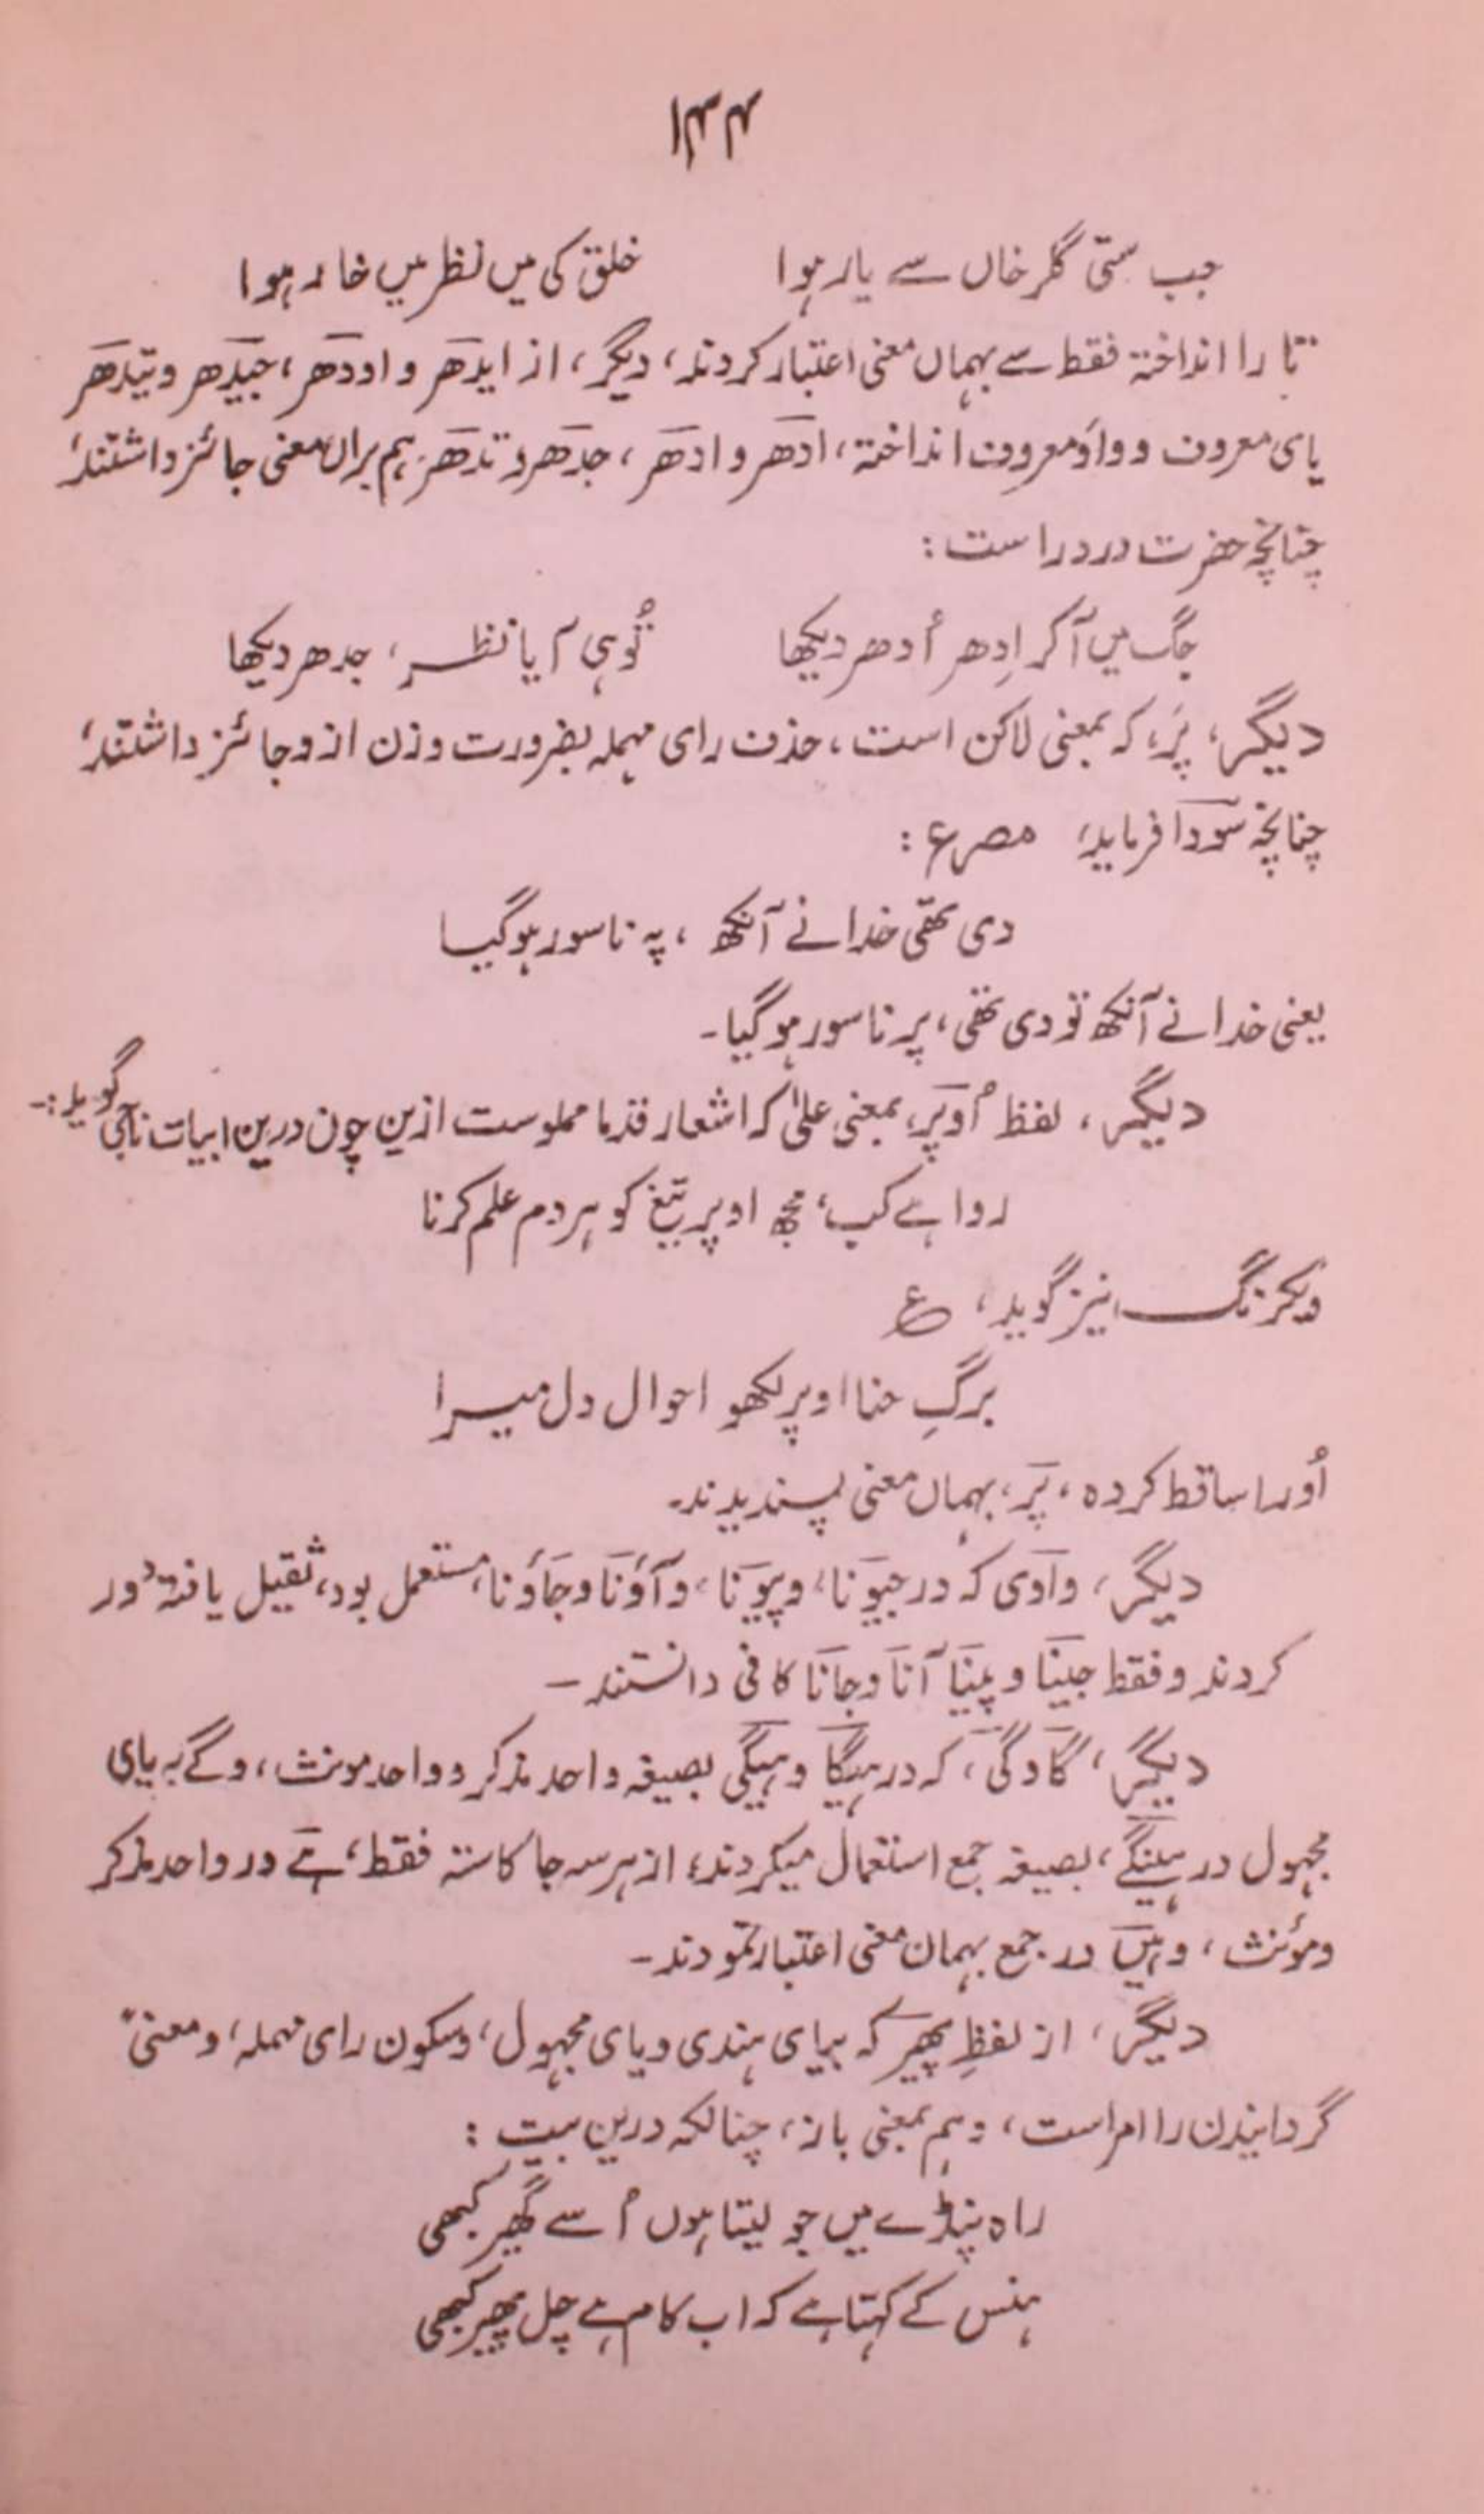 ۱۴۴
جب ستی گلرخاں سے یار ہوا خلق کی میں نظر میں خار ہوا
تا را انداختہ فقط سے بہماں معنی اعتبار کردند، دیگر، از ایدھر و اودھر، جیدھر و تیدھر
یای معروف و واؤ معروف انداختہ، ادھر و ادھر، جدھر و تدھر ہم براں معنی جائز داشتند،
چنانچہ حضرت درد راست:
جگ میں آکر اِدھر اُدھر دیکھا تُو ہی آیا نظر، جدھر دیکھا
دیگر، پَر، کہ بمعنی لاکن است، حذف رای مہملہ بضرورت وزن ازو جائز داشتند،
چنانچہ سودا فرماید، مصرع:
دی تھی خدا نے آنکھ، پہ ناسور ہوگیا
یعنی خدا نے آنکھ تو دی تھی، پر ناسور ہوگیا۔
دیگر، لفظ اُوپَر، بمعنی علیٰ کہ اشعار قدما مملوست ازین چون درین ابیات ناجی گوید:۔
روا ہے کب، مجھ اوپر تیغ کو ہر دم علم کرنا
ویکرنگ نیز گوید، ع
برگِ حنا اوپر لکھو احوال دل میرا
اُو را ساقط کردہ، پَر، بہمان معنی پسندیدند۔
دیگر، واوی کہ در جیونا، و پیونا، و آؤنا و جاؤنا، مستعمل بود، ثقیل یافتہ دور
کردند و فقط جینا و پینا آنا و جانا کافی دانستند۔
دیگر، گا و گی، کہ در ہیگا و ہیگی بصیغہ واحد مذکر و واحد مونث، و گے بہ یای
مجہول در ہینگے، بصیغہ جمع استعمال میکردند، از ہر سہ جا کاستہ فقط، ہے در واحد مذکر
و مؤنث، و ہیں در جمع بہمان معنی اعتبار نمودند۔
دیگر، از لفظِ پھیر کہ بیای ہندی و یای مجہول، و سکون رای مہملہ، و معنی
گردانیدن را امر است، و ہم بمعنی باز، چنانکہ درین بیت:
راہ پنڈے میں جو لیتا ہوں اُسے گھیر کبھی
ہنس کے کہتا ہے کہ اب کام ہے چل پھیر کبھی